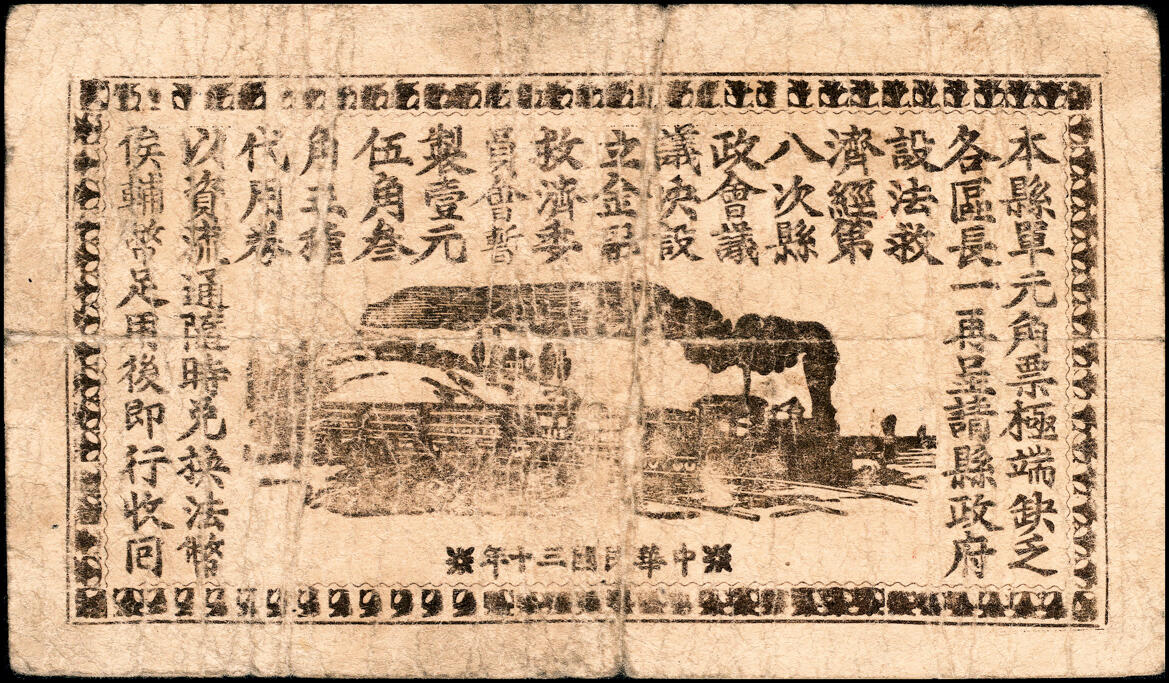 本縣單元角票極端缺乏
各區長一再呈請縣政府
設法救
濟經第
八次縣
政會議
議決設
立金融
救濟委
員會暫
製壹元
伍角叁
角三種
代用券
以資流通隨時兌換法幣
俟輔幣足用後即行收回
中華民國三十年